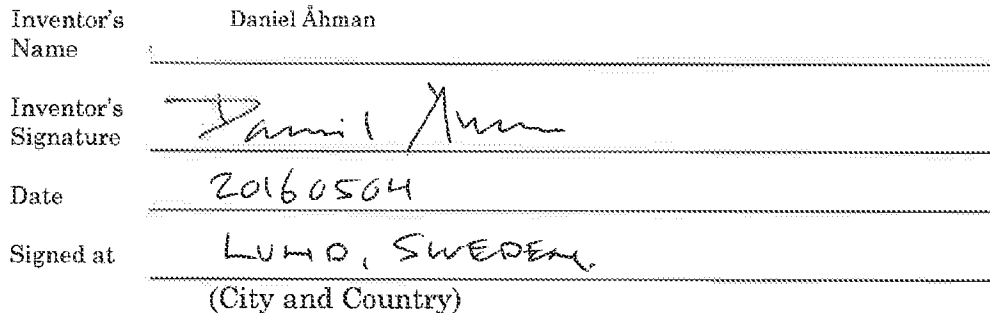 Inventor's Name Daniel Åhman
Inventor's Signature Daniel Åhman
Date 20160504
Signed at LUND, SWEDEN.
(City and Country)